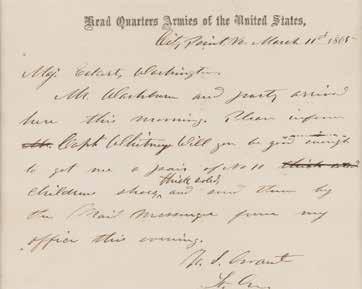 Head Quarters Armies of the United States,
City Point Va. March 11th 1865
Maj. Eckert, Washington.
Mr. Washburn and party arrived
here this morning. Please inform
Mr. Capt Whitney Will you be good enough
to get me a pair of No 11 thick and
thick soled
Childrens shoes, and send them by
the Mail Messenger from my
office this evening.
U. S. Grant
Lt. Gn.